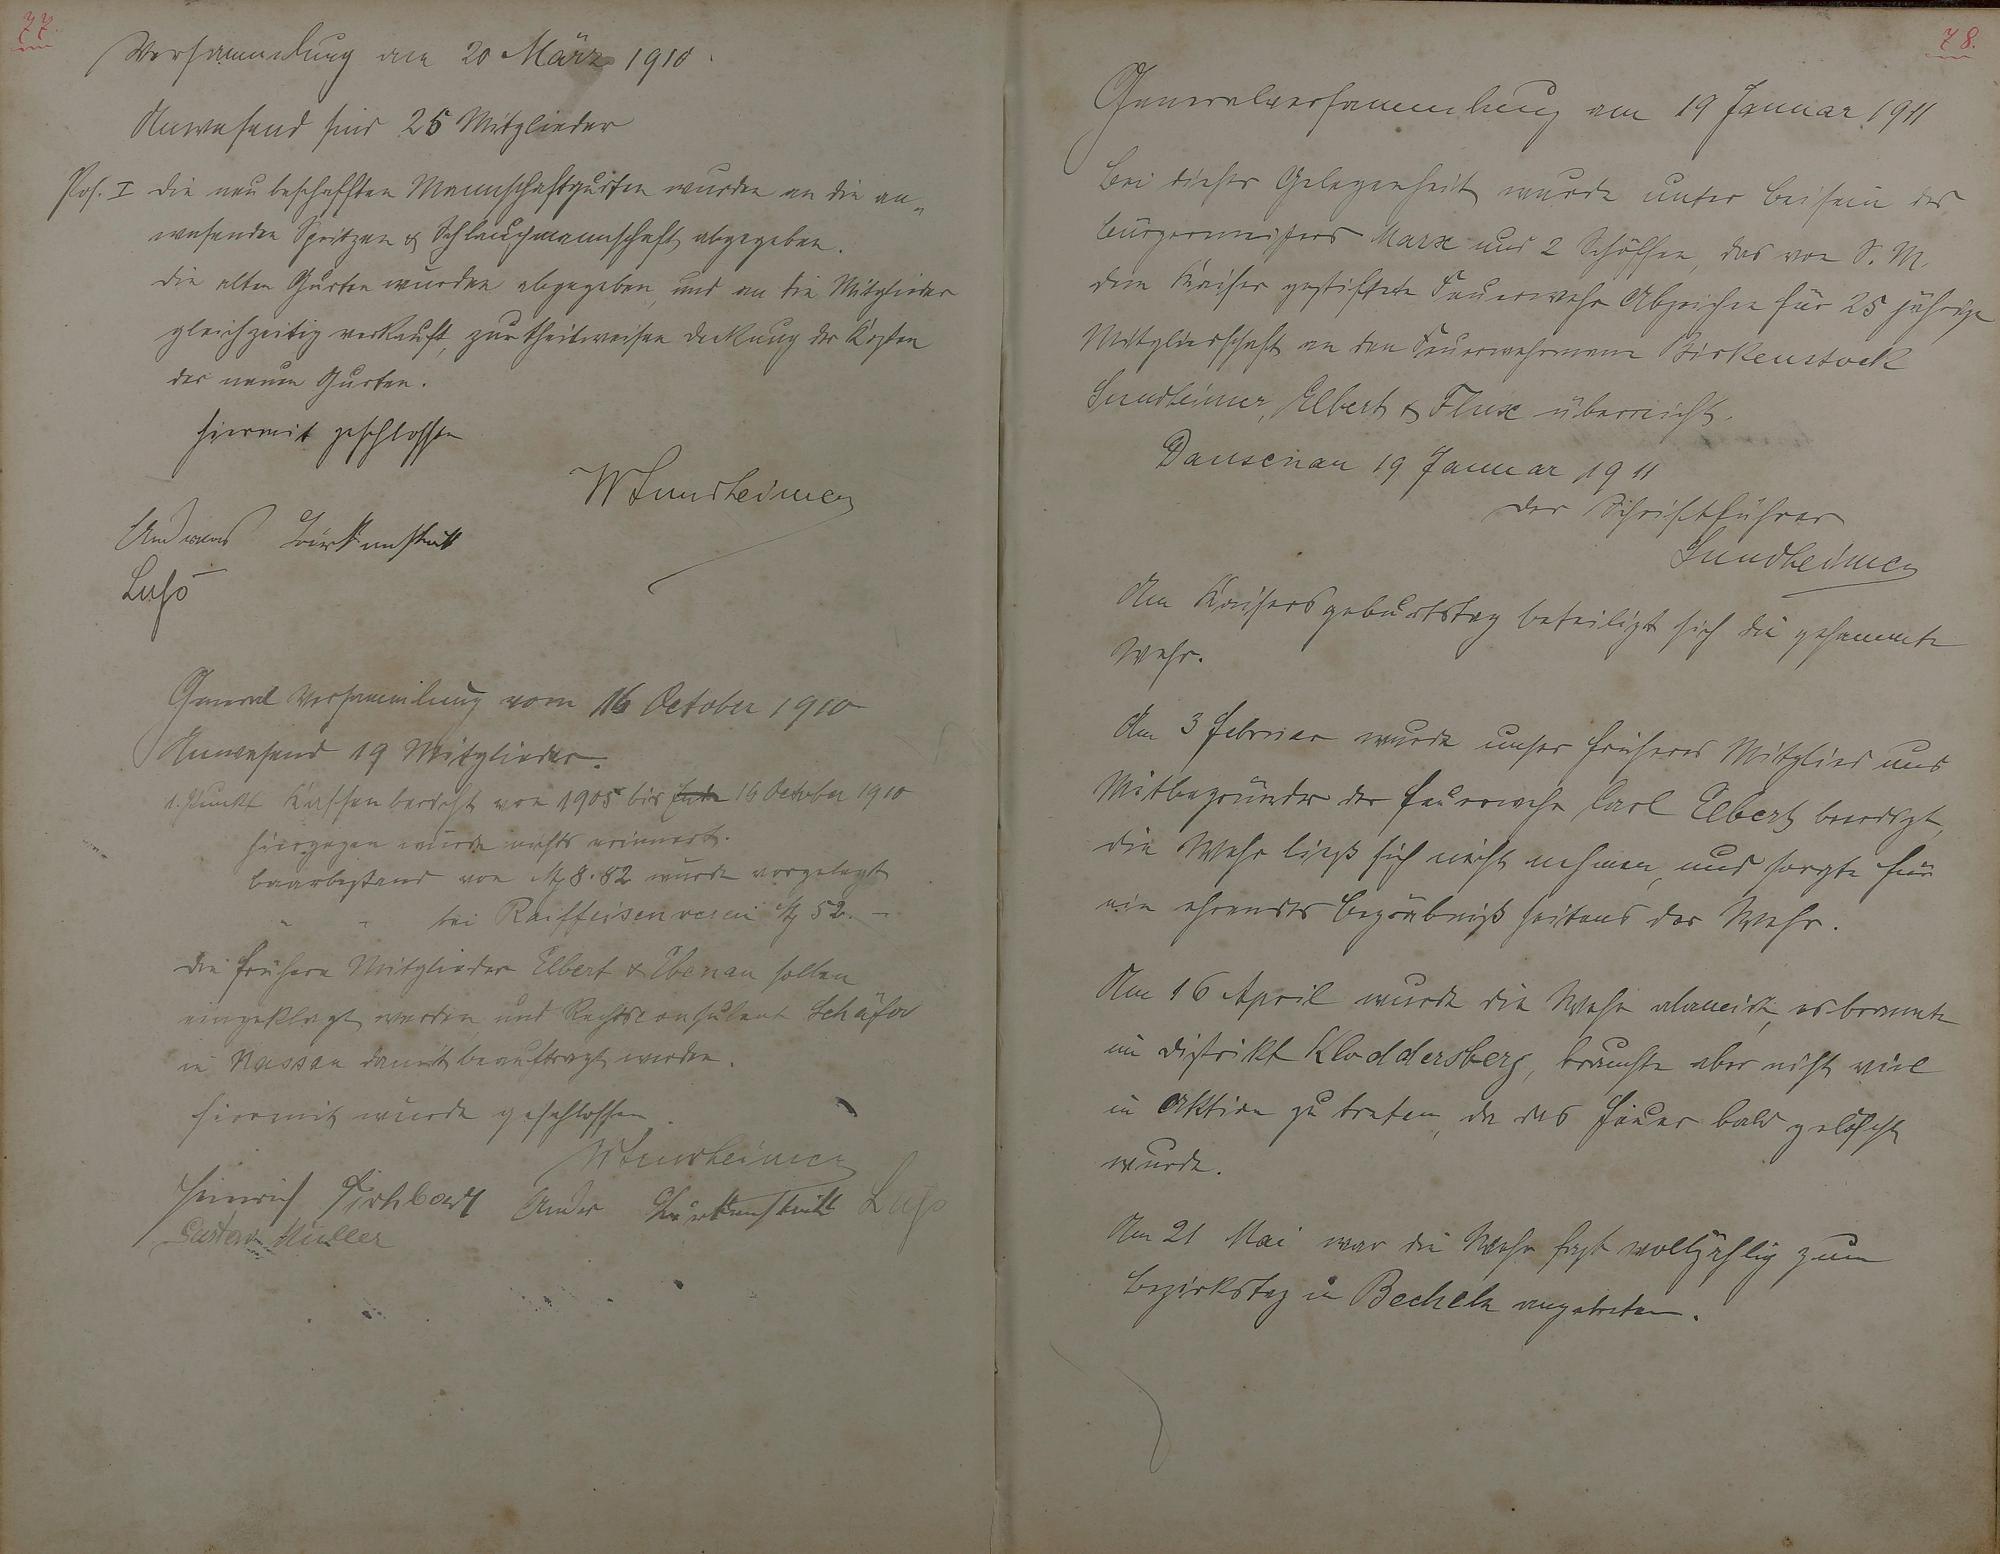 77.
Versammlung am 20 März 1910.
Anwesend sind 25 Mitglieder
Pos. I die neu beschafften Mannschaftgurten wurden an die an„
wesenden Spritzen & Schlauchmannschaft abgegeben.
die alten Gurten wurden abgegeben, und an die Mitglieder
gleichzeitig verkauft, zur theilweisen deckung der Kosten
der neuen Gurten.
hiermit geschlossen
W Sundheimer
Andreas Birkenstock
General Versammlung vom 16 October 1910
Anwesend 19 Mitglieder.
1. Punkt Kassenbericht von 1905 bis Ende 16 October 1910
hiergegen wurde nichts erinnert.
baarbestand von M 8.82 wurde vorgelegt
" " bei Raiffeisenverein M 52.–
die frühern Mitglieder Elbert & Ebenau sollen
eingeklagt werden und Rechtsconsulent Schäfer
in Nassau damit beauftragt werden.
hiermit wurde geschlossen.
W Sundheimer
Heinrich Birkenstock
Gustav Müller
78.
Generalversammlung am 19 Januar 1911
Bei dieser Gelegenheit wurde unter beisein des
bürgermeisters Marx und 2 Schöffen, das von S. M.
dem Kaiser gestiftete Feuerwehr Abzeichen für 25 jährige
Mitgliedschaft an den Feuerwehrmann Birkenstock
Sundheimer, Elbert & Flux überreicht.
Dausenau 19 Januar 1911
der Schriftführer
Sundheimer
Am Kaisersgeburtstag beteiligt sich die gesammte
Wehr.
Am 3 Februar wurde unser früheres Mitglied und
Mitbegründer der Feuerwehr Carl Elbert beerdigt,
die Wehr ließ sich nicht nehmen, und sorgte für
ein ehrendes begräbniß seitens der Wehr.
Am 16 April wurde die Wehr alamirt, es brannte
im distrikt Kloddersberg, brauchte aber nicht viel
in Aktion zu treten, da das Feuer bald gelöscht
wurde.
Am 21 Mai war die Wehr fast vollzählig zum
bezirkstag in Becheln angetreten.